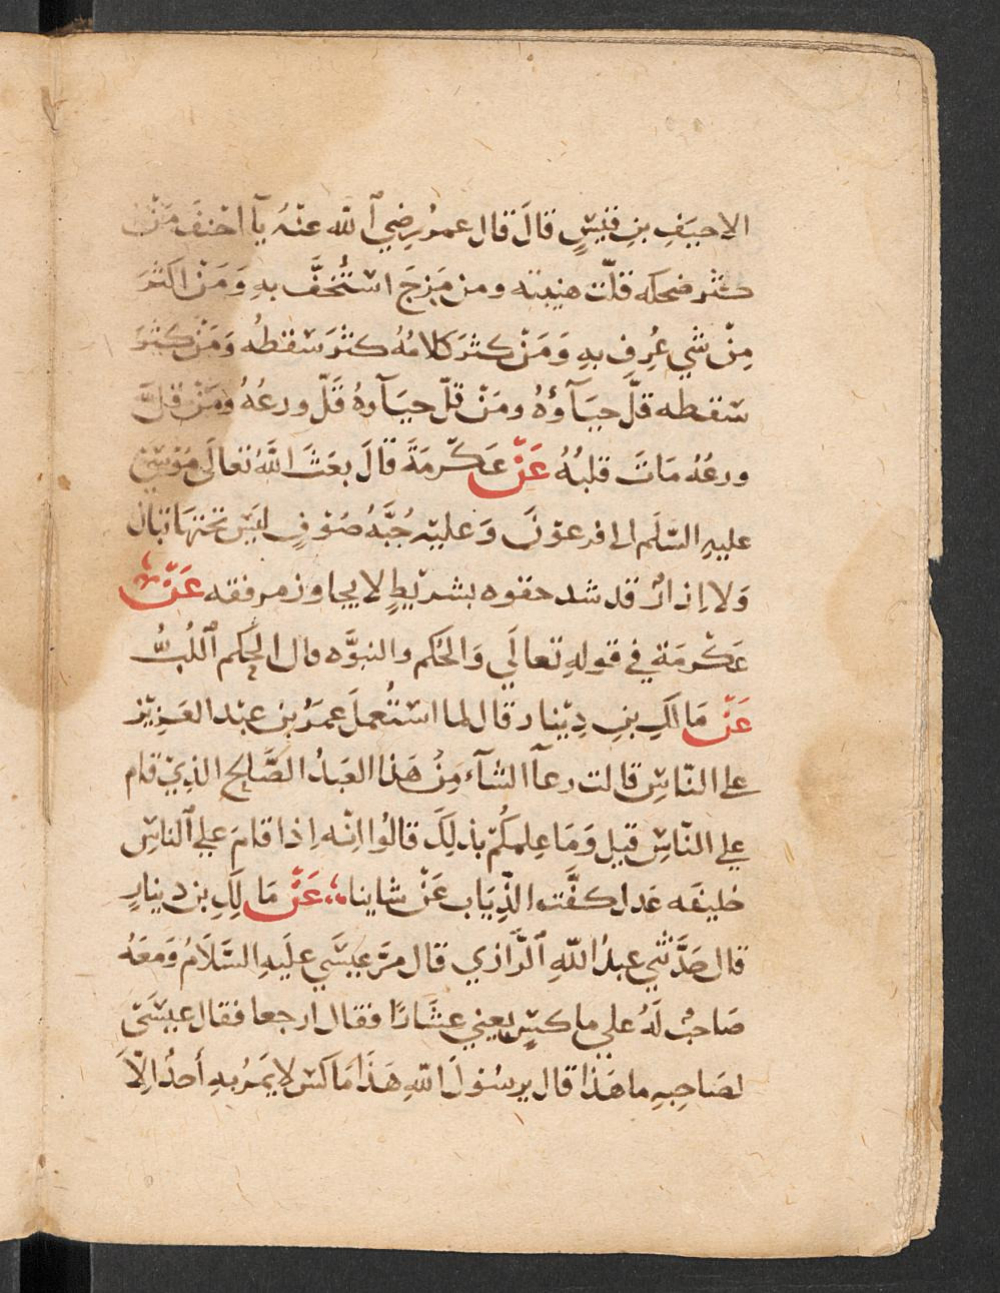 الاحنَفِ بنِ قيْسٍ قالَ قال عمرُ رضيَ ٱلله عنْهُ يآ احْنفَ مَنْ
كثر ضحكه قلّت هيبته ومن مَزَحَ اسْتُخفَّ بهِ وَمَنْ اكثَرَ
مِنْ شَيْ عُرِف بهِ وَمَنْ كثرَ كلامُهُ كثرَ سَقطُه وَمَنْ كثرَ
سَقطه قلَّ حيَآؤُهُ ومَنْ قلّ حيَآوهُ قَلّ ورعُهُ ومَنْ قلَّ
ورعُهُ مَاتَ قلبُهُ عَنْ عَكْرمَةَ قالَ بعَثَ اللهُ تعالَى مُوْسَى
عليهِ السّلَم الى فرعوْنَ وَعليْه جُبَّهُ صُوْفٍ ليَسَ تحتهَا تبان
وَلا اِزارٌ قد شد حقوه بشريْطٍ لا يجاوز مرفقه عَنْ
عَكْرمَة في قولهِ تعالَي وَالحُكم والنبوَّه قال الحكم ٱللُبُّ
عَنْ مَالكِ بنِ دِيْنار قال لما اسْتُعملَ عمرُ بن عبْد العَزِيْز
على النّاسِ قالت رعآ الشآء مَنْ هَذا العَبدُ الصَّالح الذِيْ قام
علي النّاسِ قيل وَمَا عِلمكُمْ بذلِكَ قالُوا انّه اِذا قامَ علي ٱلناسِ
خليفَه عَدل كفَّت الذِّيَاب عَنْ شاينا عَنْ مَالكِ بن دينارٍ
قال حَدَّثَني عبدُ اللهِ ٱلرَّازي قال مرَّ عيسَي عليَهِ السَّلَامُ وَمعَهُ
صَاحبٌ لَهُ على ماكسٍ يعني عشَّارًا فقال ارجعا فقال عيسَىْ
لصَاحبهِ ما هَذا قال يرسُولَ اللهِ هَذَا مَاكس لا يمَرُ بهِ أحدُ اِلَّا